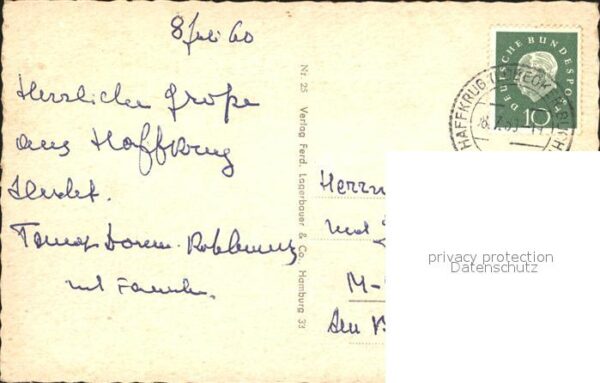 8 Juli 60
Herzliche Grüße
aus Haffkrug
sendet
mit Familie.
Nr. 25 Verlag Ferd. Lagerbauer & Co. Hamburg 33
DEUTSCHE BUNDESPOST
10
HAFFKRUG
Herrn
und
M-
den
privacy protection
Datenschutz